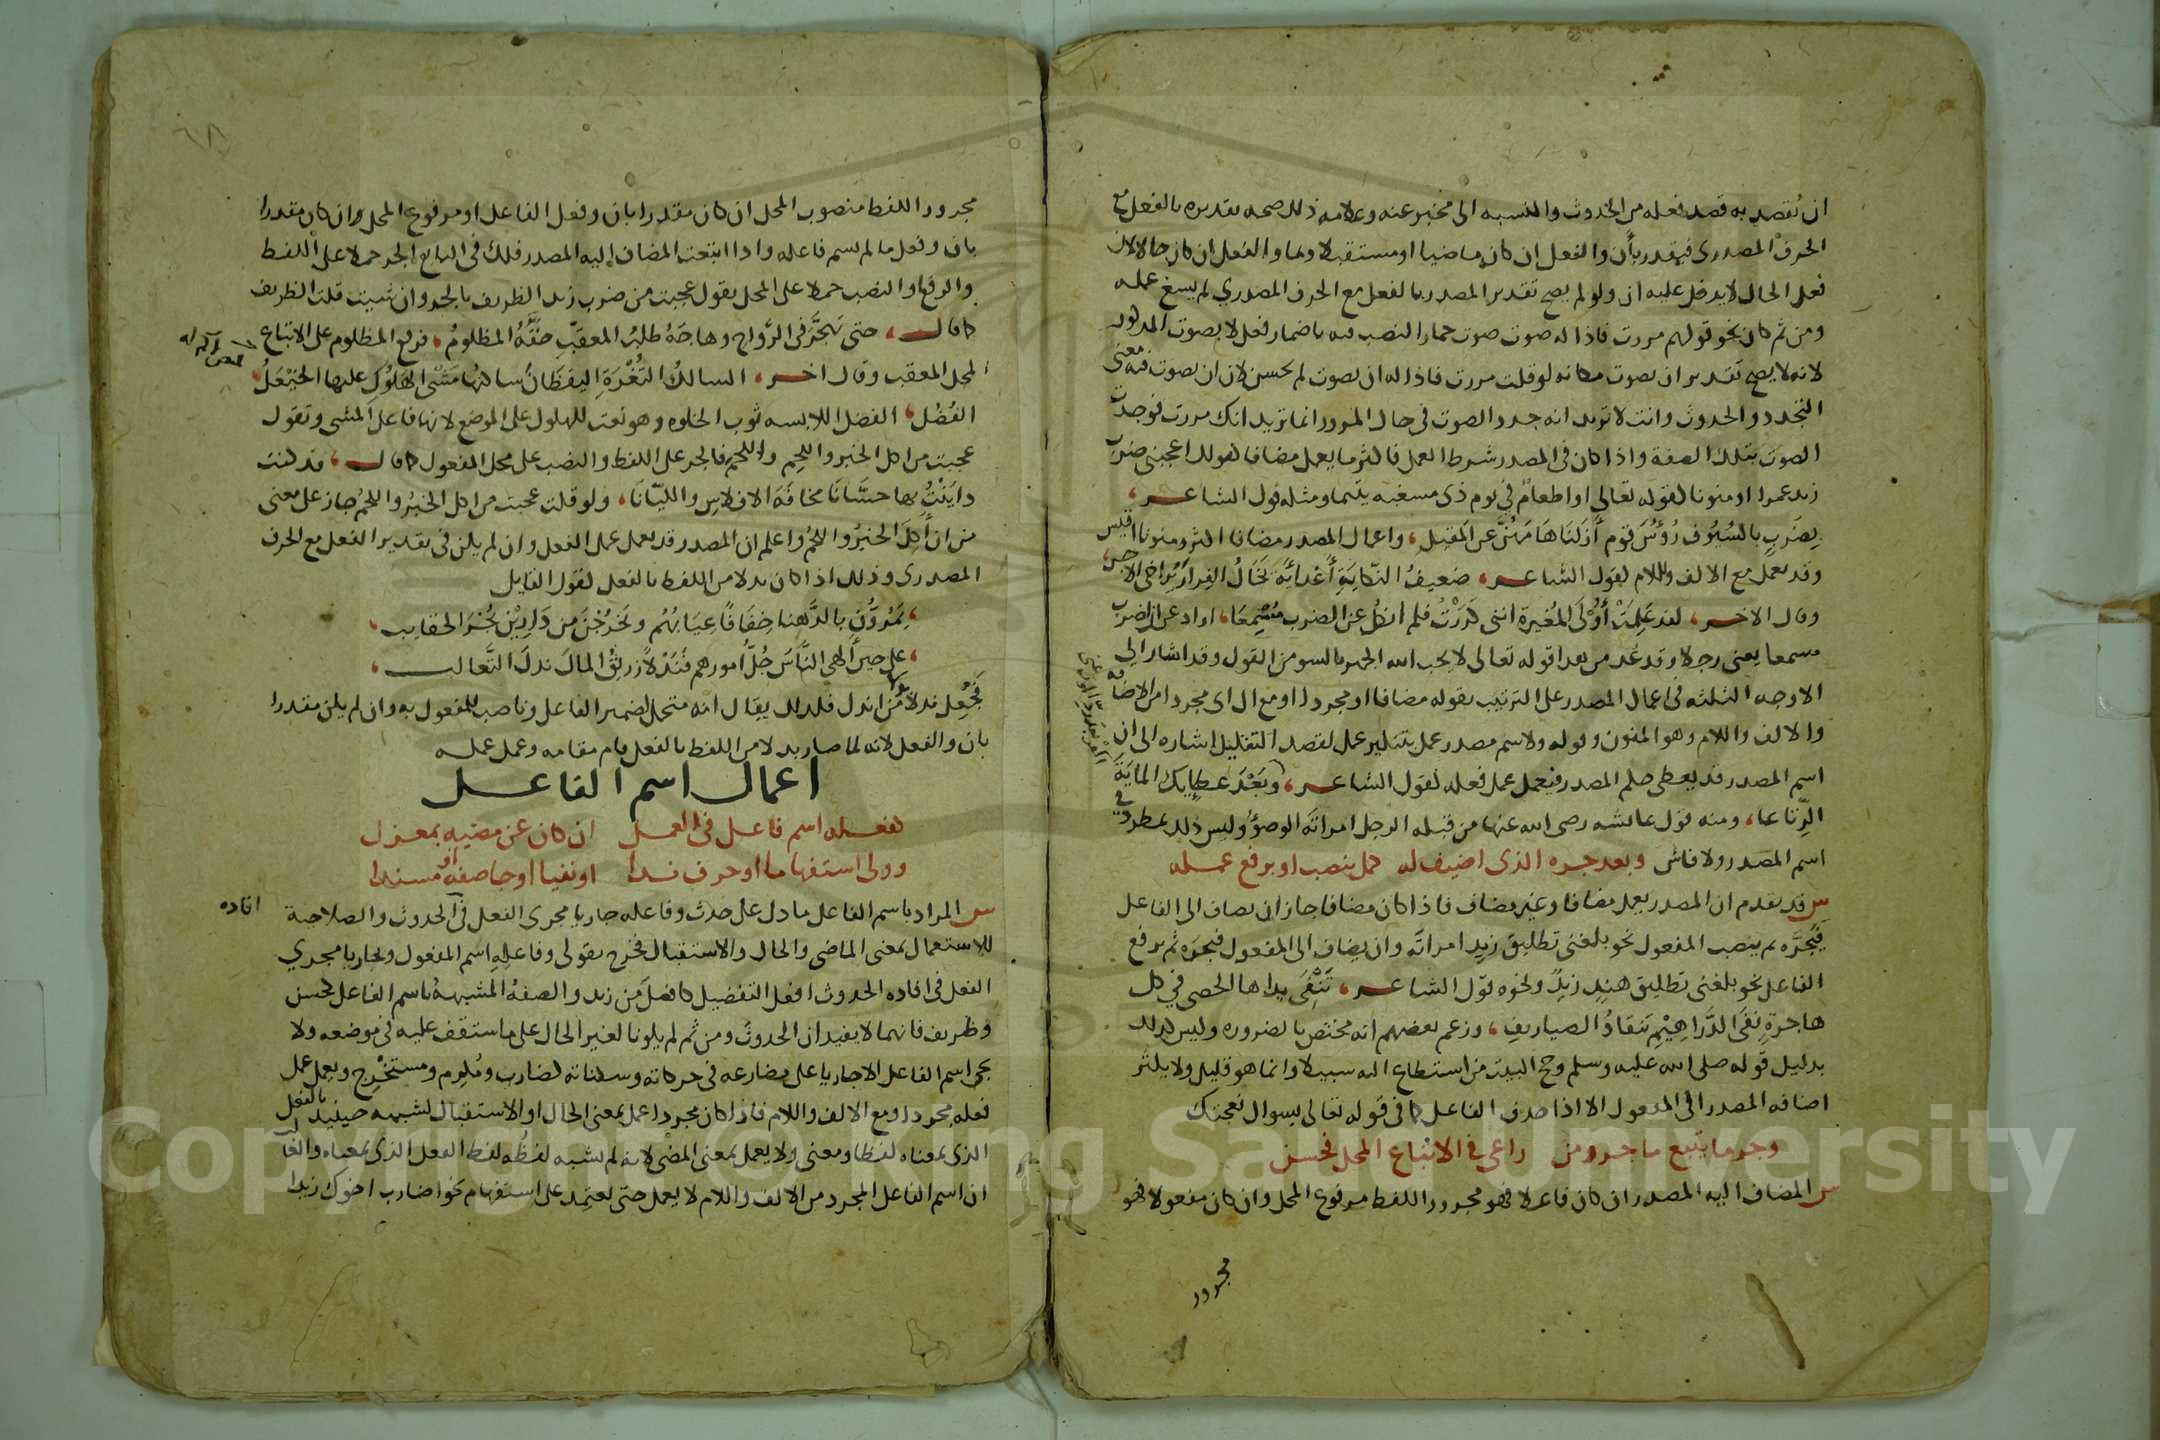 ان يقصد به قصد فعله من الحدوث والنسبه الى مخبر عنه وعلامه ذلك صحه تقديره بالفعل مع
الحرف المصدري فيقدر بأن والفعل ان كان ماضيا او مستقبلا وبما والفعل ان كان حالا لان
فعل الحال لا يدخل عليه ان ولو لم يصح تقدير المصدر بالفعل مع الحرف المصدري لم يسغ عمله
ومن ثم كان نحو قولهم مررت فاذا له صوت صوت حمار النصب فيه باضمار فعل لا بصوت المذكور
لانه لا يصح تقدير ان يصوت مكانه لو قلت مررت فاذا له ان يصوت لم يحسن لان ان يصوت فيه معنى
التجدد والحدوث وانت لا تريد انه جدد الصوت في حال المرور انما تريد انك مررت فوجدت
الصوت بتلك الصفة واذا كان في المصدر شرط العمل فاكثر ما يعمل مضافا كقولك اعجبني ضرب
زيد عمرا او منونا كقوله تعالى او اطعام في يوم ذي مسغبه يتيما ومثله قول الشاعر
بضرب بالسيوف رؤس قوم أزلنا هامهن عن المقيل، واعمال المصدر مضافا اكثر ومنونا اقيس
وقد يعمل مع الالف واللام كقول الشاعر، ضعيف النكاية أعداءه يخال الفرار يراخي الاجل
وقال الاخر، لقد علمت أولى المغيرة انني كررت فلم انكل عن الضرب مسمعا، اراد عن ان اضرب
مسمعا يعني رجلا وقد عد من هذا قوله تعالى لا يحب الله الجهر بالسو من القول وقد اشار الى
الاوجه الثلثه في اعمال المصدر على الترتيب بقوله مضافا او مجردا او مع ال اى مجردا من الاضافه
والالف واللام وهو المنون وقوله ولاسم مصدر عمل بتنكير عمل لقصد التقليل اشاره الى ان
اسم المصدر قد يعطى حكم المصدر فيعمل عمل فعله كقول الشاعر، وبعد عطايك المايَة
الرتاعا، ومنه قول عائشه رضى الله عنها من قبله الرجل امراته الوضؤ وليس ذلك بمطرد في
اسم المصدر ولا فاش وبعد جره الذى اضيف له كمل بنصب او برفع عمله
س قد تقدم ان المصدر يعمل مضافا وغير مضاف فاذا كان مضافا جاز ان يضاف الى الفاعل
فيجره ثم ينصب المفعول نحو بلغنى تطليق زيد امراته وان يضاف الى المفعول فيجره ثم يرفع
الفاعل نحو بلغنى تطليق هند زيد ونحوه قول الشاعر، تنفى يداها الحصى في كل
هاجرة نفى الدراهيم تنقاد الصياريف، وزعم بعضهم انه مختص بالضروره وليس كذلك
بدليل قوله صلى الله عليه وسلم وحج البيت من استطاع اليه سبيلا وانما هو قليل ولا يكثر
اضافه المصدر الى المفعول الا اذا حذف الفاعل كما في قوله تعالى بسوال نعجتك
وجر ما يتبع ما جر ومن راعى في الاتباع المحل فحسن
س المضاف اليه المصدر ان كان فاعلا فهو مجرور اللفظ مرفوع المحل وان كان مفعولا فهو
مجرور
مجرور اللفظ منصوب المحل ان كان مقدرا بان وفعل الفاعل او مرفوع المحل وان كان مقدرا
بان وفعل ما لم يسم فاعله واذا اتبعت المضاف إليه المصدر فلك في التابع الجر حملا على اللفظ
والرفع او النصب حملا على المحل تقول عجبت من ضرب زيد الظريف بالجر وان شيت قلت الظريف
كما قال، حتى تهجر في الرواح وهاجه طلب المعقب حقه المظلوم، فرفع المظلوم على الاتباع
لمحل المعقب وقال اخر، السالك الثغرة اليقظان سالكها مشى الهلوك عليها الخيعل
الفضل، الفضل اللابسه ثوب الخلوه وهو نعت للهلوك على الموضع لانها فاعل المشى وتقول
عجبت من اكل الخبز واللحم واللحم فالجر على اللفظ والنصب على محل المفعول كما قال، قد كنت
داينت بها حسانا مخافة الافلاس والليانا، ولو قلت عجبت من اكل الخبز واللحم جاز على معنى
من ان أكل الخبز واللحم واعلم ان المصدر قد يعمل عمل الفعل وان لم يكن في تقدير الفعل مع الحرف
المصدرى وذلك اذا كان بدلا من اللفظ بالفعل كقول القايل
يمرون بالدهنا خفافا عيابهم ويخرجن من دارين بجر الحقايب
على حين ألهى الناس جل أمورهم فندلا زريق المال ندل الثعالب
فجعل ندلا من اندل فلذلك يقال انه متحمل لضمير الفاعل وناصب للمفعول به وان لم يكن مقدرا
بان والفعل لانه لما صار بدلا من اللفظ بالفعل قام مقامه وعمل عمله
اعمال اسم الفاعل
كفعله اسم فاعل في العمل ان كان عن مضيه بمعزل
وولى استفهاما او حرف ندا او نفيا او جا صفه او مسندا
س المراد باسم الفاعل ما دل على حدث وفاعله جاريا مجرى الفعل في الحدوث والصلاحية
افاده
للاستعمال بمعنى الماضى والحال والاستقبال فخرج بقولى وفاعله اسم المفعول وبجاريا مجري
الفعل في افاده الحدوث افعل التفضيل كافضل من زيد والصفه المشبهة باسم الفاعل كحسن
وظريف فانهما لا يفيدان الحدوث ومن ثم لم يكونا لغير الحال على ما ستقف عليه في موضعه ولا
يجى اسم الفاعل الا جاريا على مضارعه في حركاته وسكناته كضارب ومكرم ومستخرج ويعمل عمل
فعله مجردا ومع الالف واللام فاذا كان مجردا عمل بمعنى الحال او الاستقبال لشبهه حينيذ بالفعل
الذى بمعناه لفظا ومعنى ولا يعمل بمعنى المضى لانه لم يشبه لفظه لفظ الفعل الذى بمعناه والغالب
ان اسم الفاعل المجرد من الالف واللام لا يعمل حتى يعتمد على استفهام نحو اضارب اخوك زيدا
Copyright © King Saud University